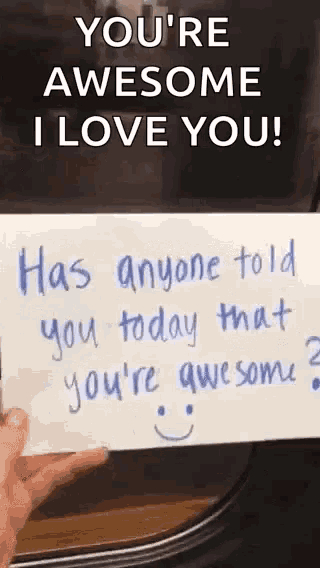 YOU'RE
AWESOME
I LOVE YOU!
Has anyone told
you today that
you're awesome?